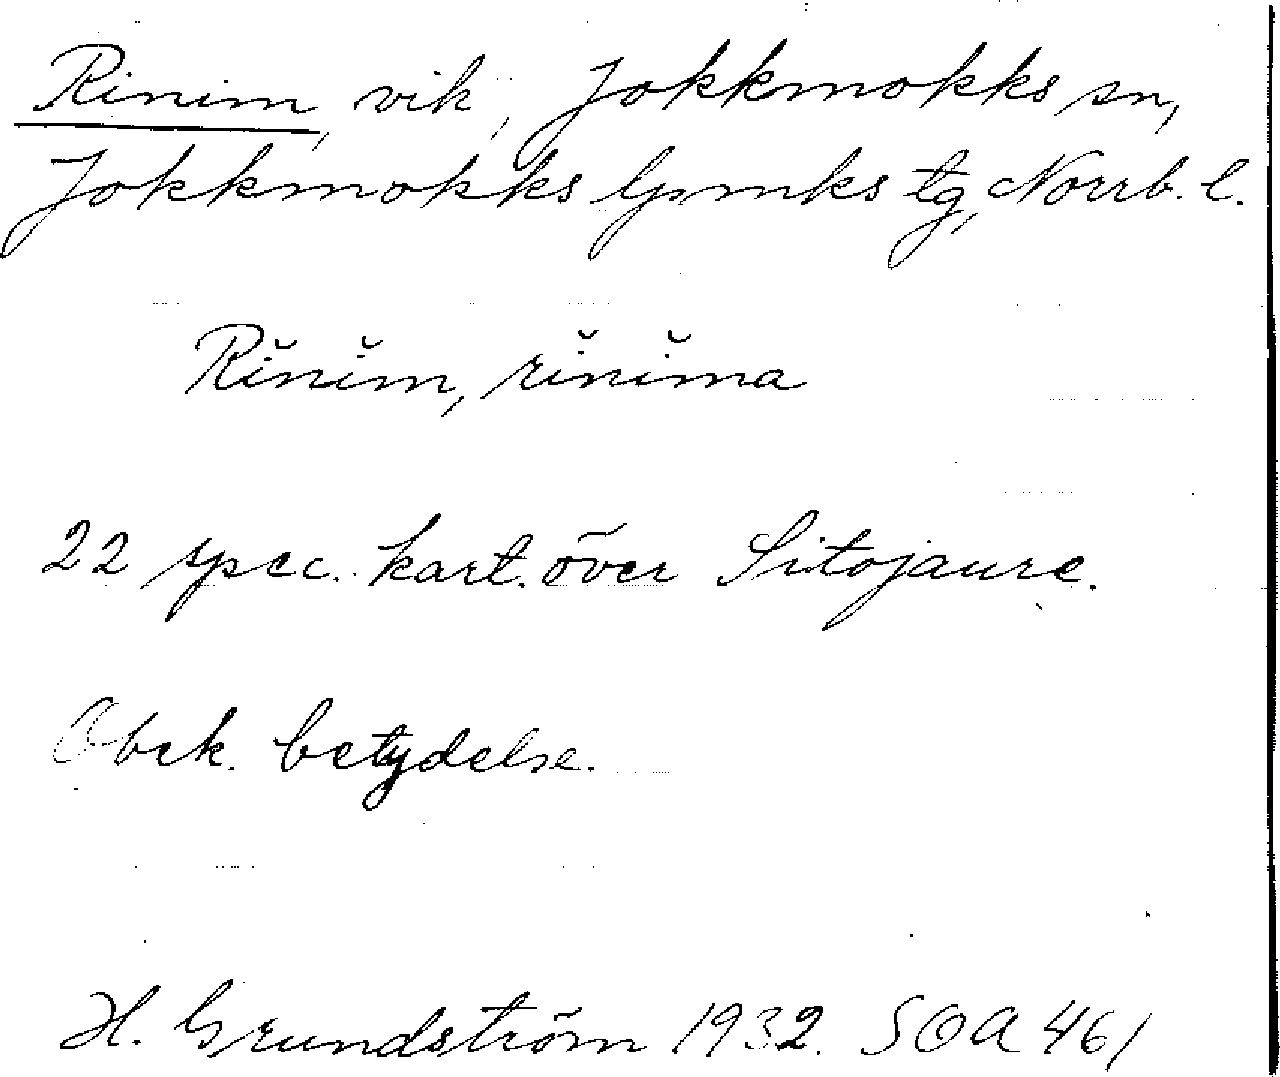 Rinim, vik, Jokkmokks sn,
Jokkmokks lpmks tg, Norrb. l.
Rĭnĭm, rĭnĭma
22 spec. kart. över Sitojaure.
Obek. betydelse.
H. Grundström 1932. SOA 461